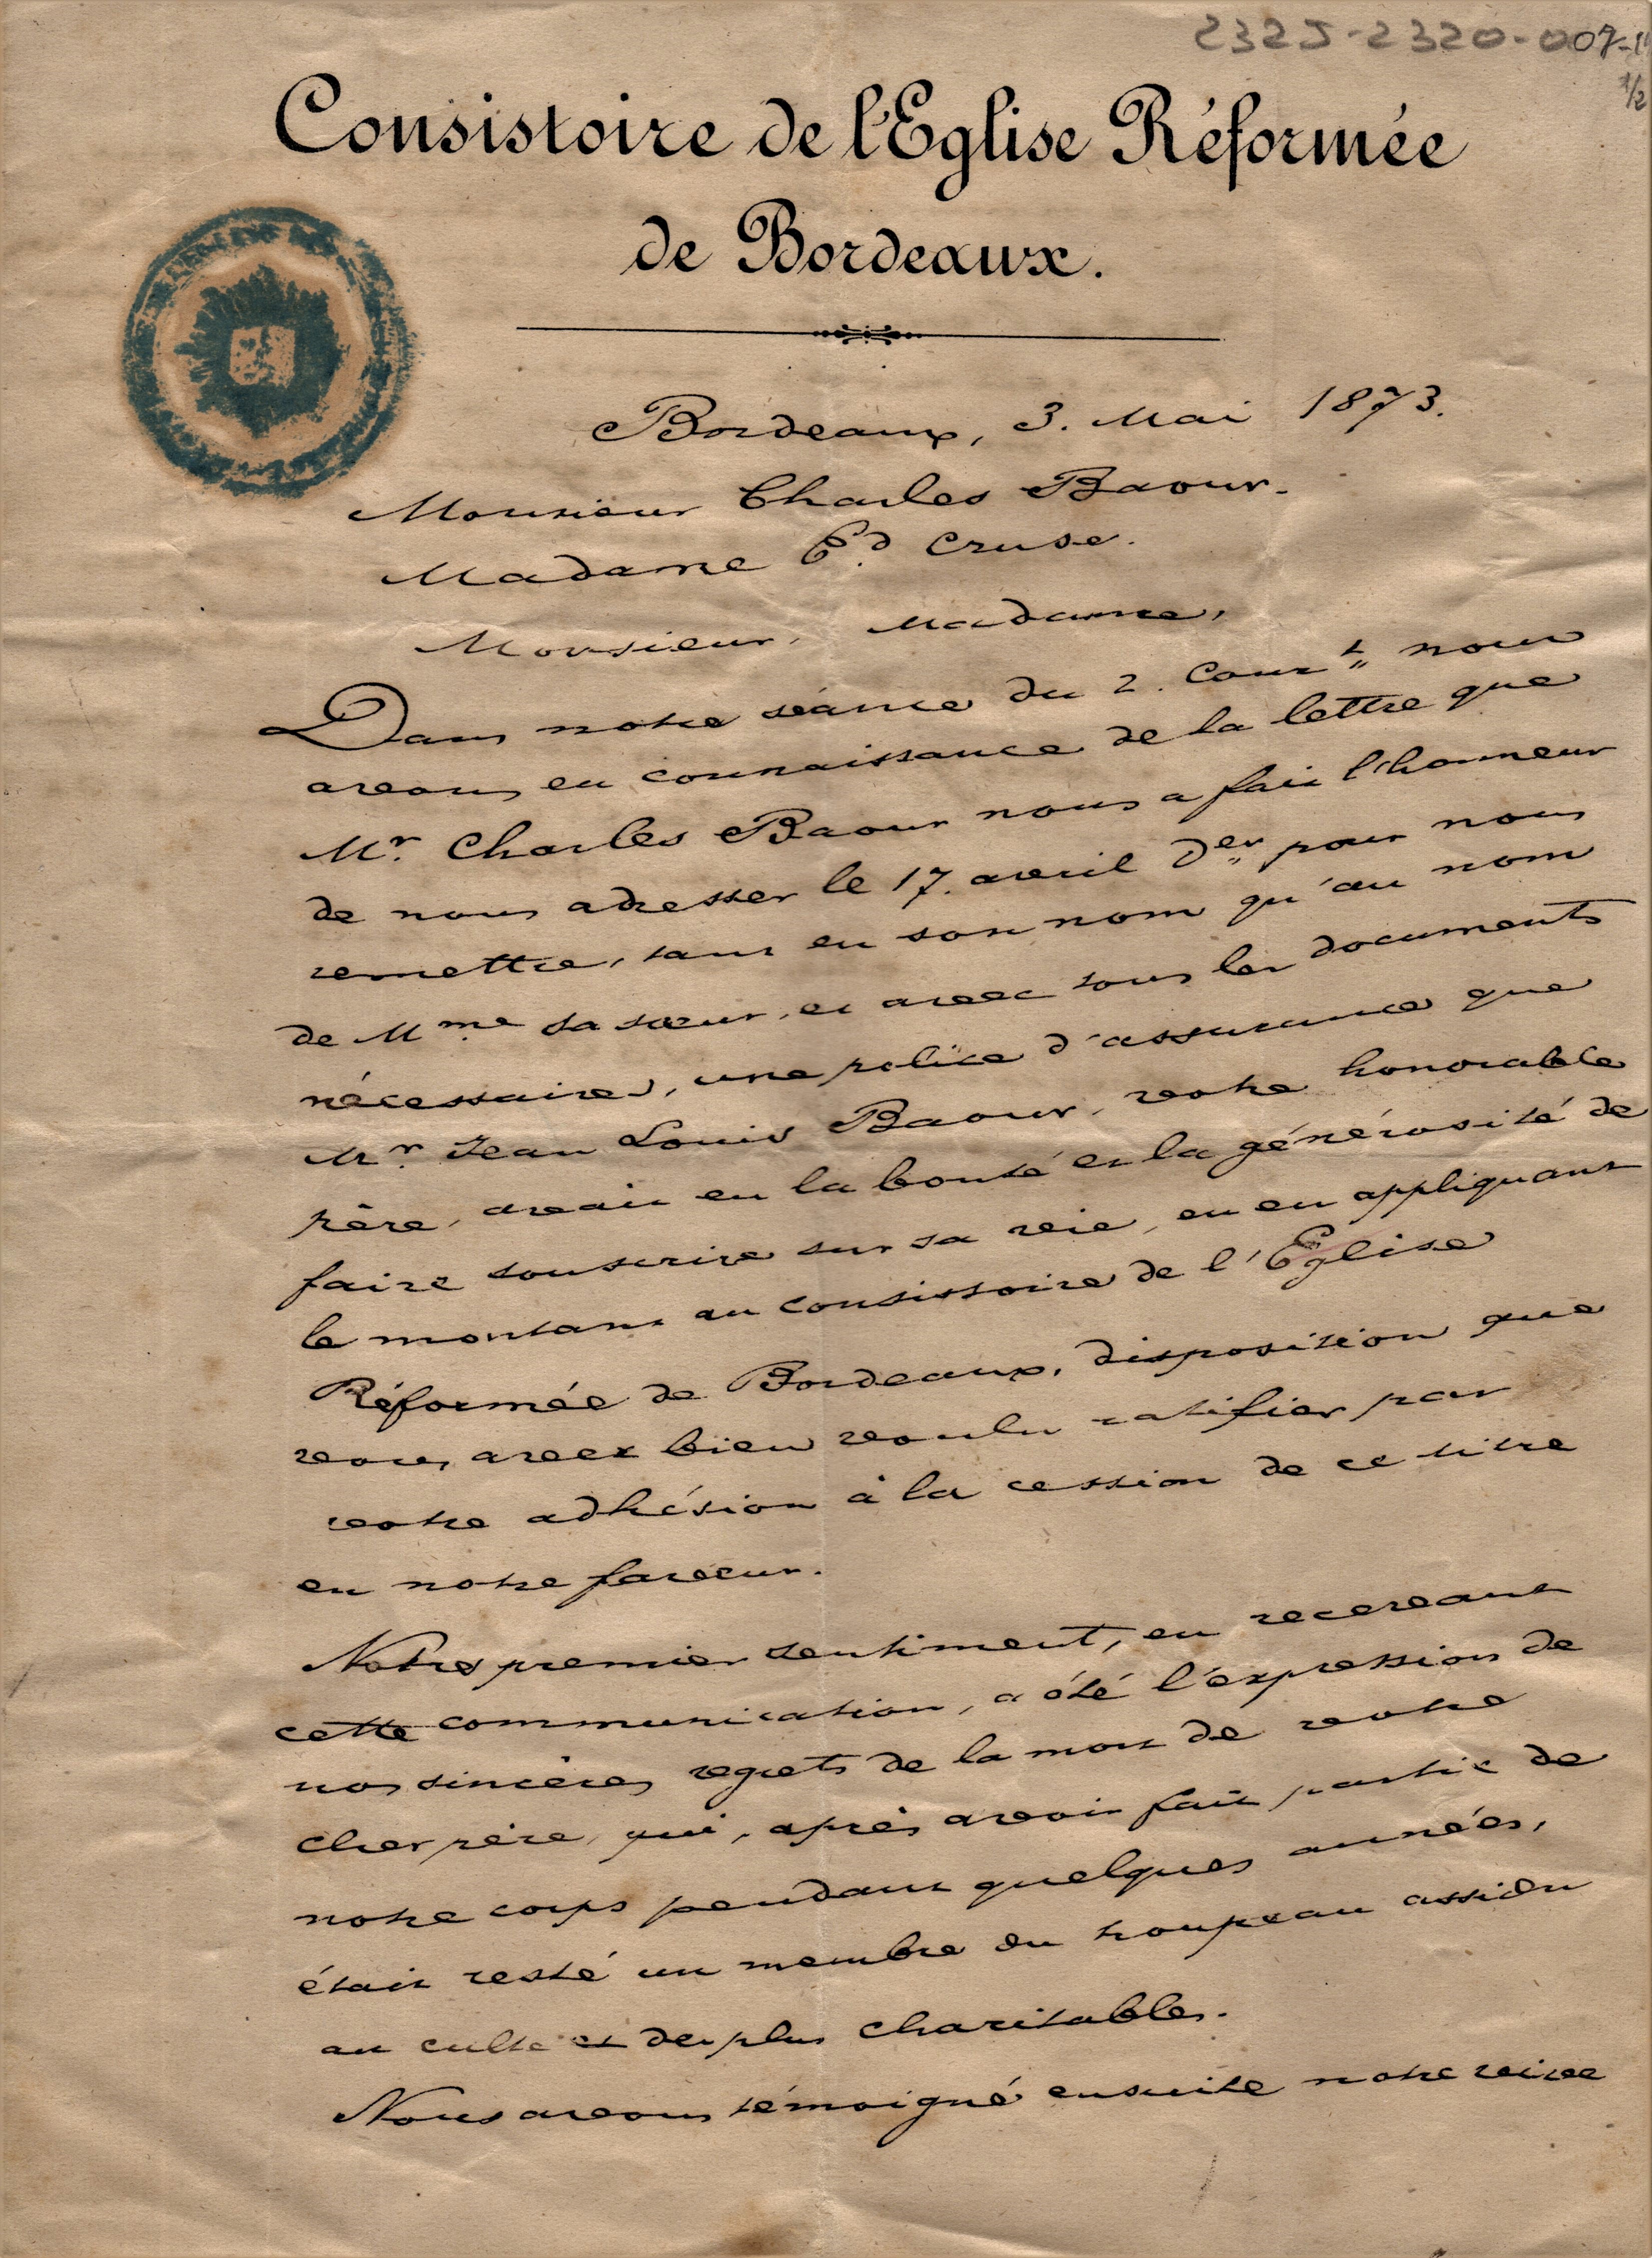 232J-2320-007-1
1/2
Consistoire de l'Eglise Réformée
de Bordeaux.
Bordeaux, 3. Mai 1873.
Monsieur Charles Baour.
Madame Ed. Cruse.
Monsieur, Madame,
Dans notre séance du 2. Court nous
avons eu connaissance de la lettre que
Mr. Charles Baour nous a fait l'honneur
de nous adresser le 17. avril der pour nous
remettre, tant en son nom qu'au nom
de Mme sa sœur, et avec tous les documents
nécessaires, une police d'assurance que
Mr. Jean Louis Baour, votre honorable
père, avait eu la bonté et la générosité de
faire souscrire sur sa vie, en en appliquant
le montant au consistoire de l'Eglise
Réformée de Bordeaux, disposition que
vous avez bien voulu ratifier par
votre adhésion à la cession de ce titre
en notre faveur.
Notre premier sentiment, en recevant
cette communication, a été l'expression de
nos sincères regrets de la mort de votre
cher père, qui, après avoir fait partie de
notre corps pendant quelques années,
était resté un membre du troupeau assidu
au culte et des plus charitables.
Nous avons témoigné ensuite notre vive